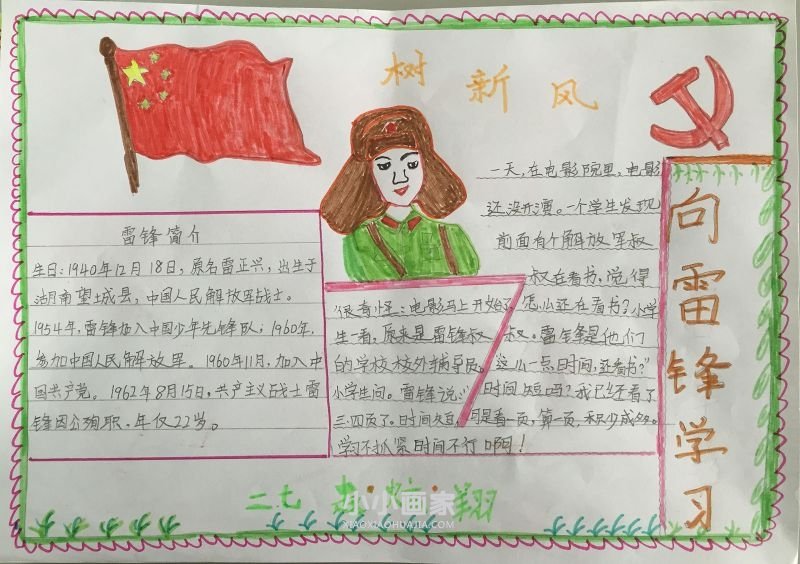 树新风
向雷锋学习
雷锋简介
生日:1940年12月18日,原名雷正兴,出生于
湖南望城县,中国人民解放军战士。
1954年,雷锋加入中国少年先锋队;1960年,
参加中国人民解放军。1960年11月,加入中
国共产党。1962年8月15日,共产主义战士雷
锋因公殉职,年仅22岁。
一天,在电影院里,电影
还没开演。一个学生发现
前面有个解放军叔
叔在看书,觉得
很奇怪:电影马上开始了,怎么还在看书?小学
生一看,原来是雷锋叔叔。雷锋是他们
的学校校外辅导员。"这么一点时间,还看书?"
小学生问。雷锋说:"时间短吗?我已经看了
三、四页了。时间短,可是看一页,算一页,积少成多。
学习不抓紧时间不行啊!
二七
翔
小小画家
XIAOXIAOHUAJIA.COM